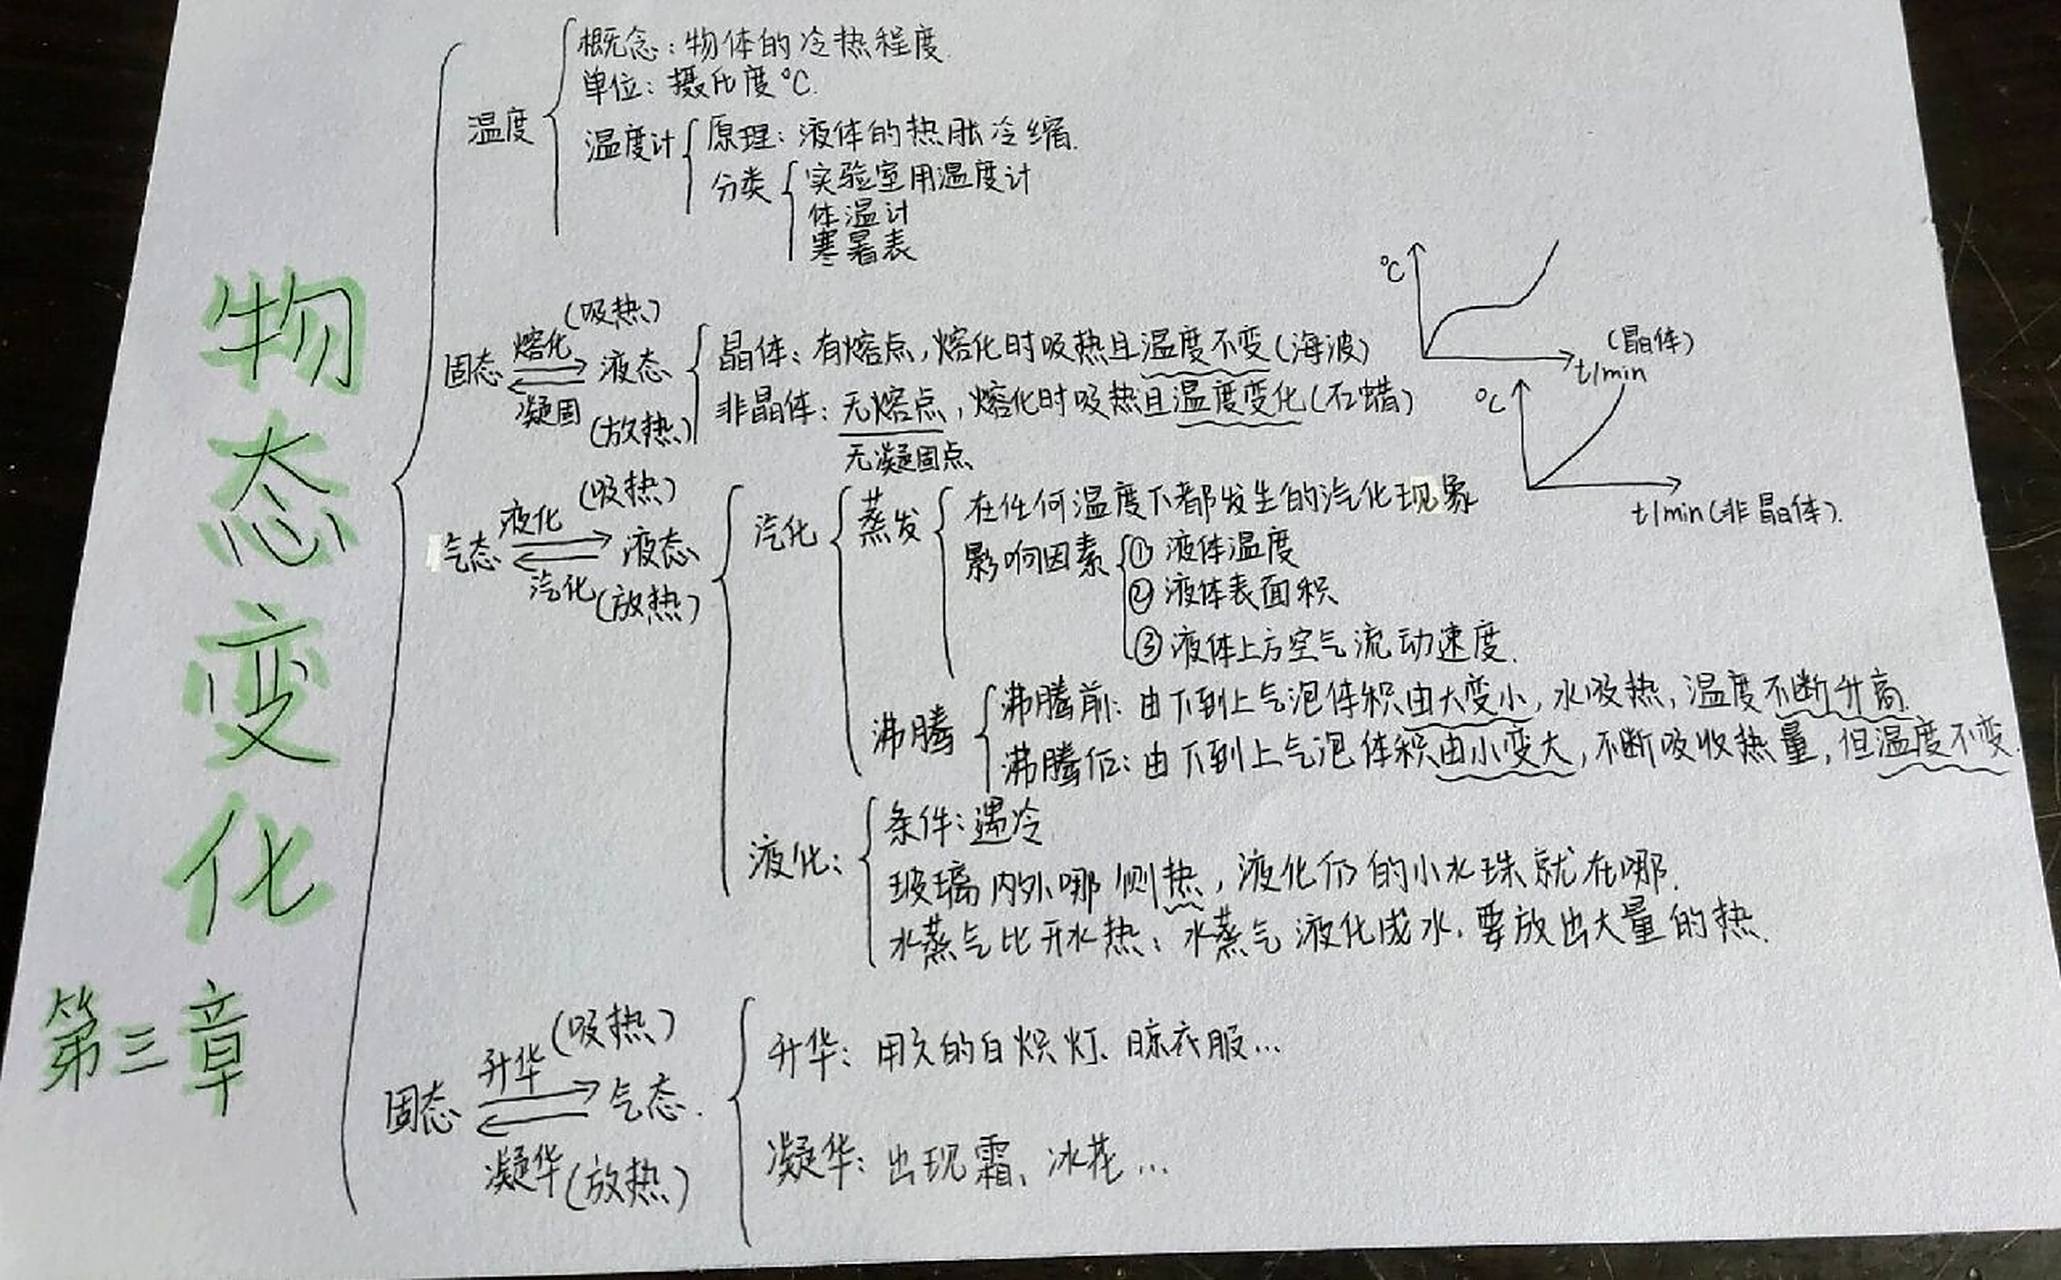 第三章
物态变化
温度
概念：物体的冷热程度.
单位：摄氏度℃.
温度计
原理：液体的热胀冷缩.
分类
实验室用温度计
体温计
寒暑表
固态
熔化
(吸热)
凝固
(放热)
液态
晶体：有熔点，熔化时吸热且温度不变(海波)
非晶体：无熔点，熔化时吸热且温度变化(石蜡)
无凝固点
℃
t/min
(晶体)
℃
t/min(非晶体).
气态
液化
(吸热)
汽化
(放热)
液态
汽化
蒸发
在任何温度下都发生的汽化现象
影响因素
①液体温度
②液体表面积
③液体上方空气流动速度.
沸腾
沸腾前：由下到上气泡体积由大变小，水吸热，温度不断升高.
沸腾后：由下到上气泡体积由小变大，不断吸收热量，但温度不变.
液化：
条件：遇冷
玻璃内外哪侧热，液化仍的小水珠就在哪.
水蒸气比开水热：水蒸气液化成水，要放出大量的热.
固态
升华
(吸热)
凝华
(放热)
气态.
升华：用久的白炽灯、晾衣服...
凝华：出现霜、冰花...